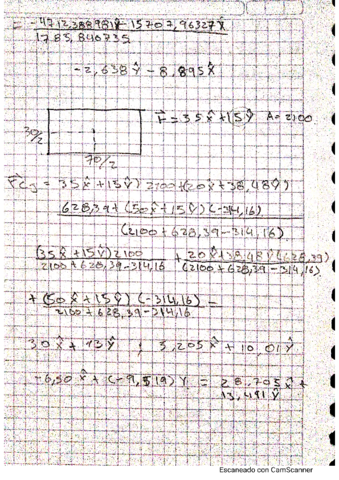 = -4712,388981ŷ - 15707,96327x̂
1785,840735
-2,638ŷ - 8,895x̂
r̄ = 35x̂ + 15ŷ A = 2100
30/2
70/2
= 35x̂ + 15ŷ) 2100 + (20x̂ + 38,48ŷ)
628,39 + (50x̂ + 15ŷ) (-314,16)
(2100 + 628,39 - 314,16)
(35x̂ + 15ŷ) 2100 + 20x̂ + 38,48ŷ (628,39)
2100 + 628,39 - 314,16 (2100 + 628,39 - 314,16)
+ (50x̂ + 15ŷ) (-314,16) =
2100 + 628,39 - 314,16
30x̂ + 13ŷ ; 5,205x̂ + 10,01ŷ
-6,50x̂ + (-9,519) Y = 28,705x̂ +
13,491ŷ
Escaneado con CamScanner